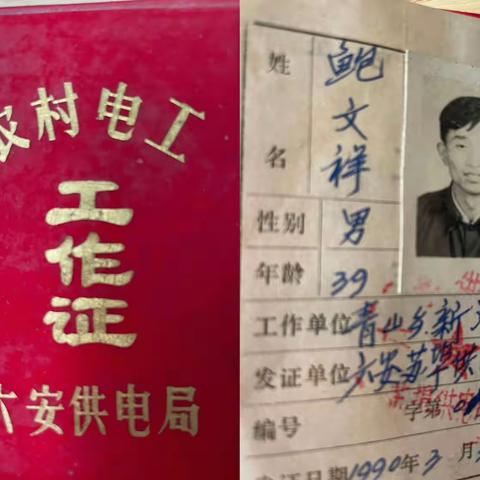 农村电工
工作证
六安供电局
姓名 鲍文祥
性别 男
年龄 39
工作单位 青山乡新
发证单位 六安苏埠供
编号 字第
发证日期 1990年3月